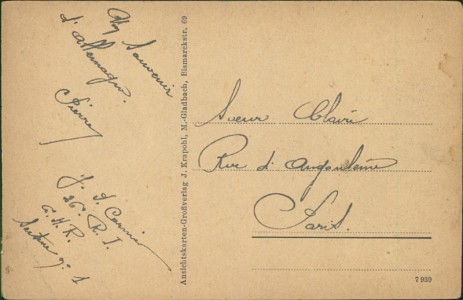 Souvenir
d'allemagne.
Pierre
26e R. I.
Secteur N° 1
Ansichtskarten-Großverlag J. Krapohl, M.-Gladbach, Bismarckstr. 69.
Sœur Claire
Rue d'angoulème
Paris.
7939